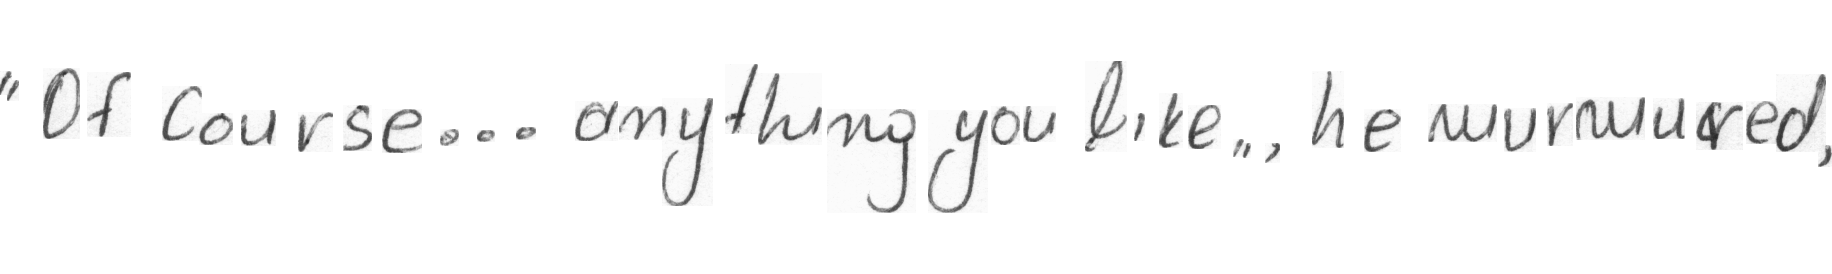 "Of course... anything you like", he murmured,